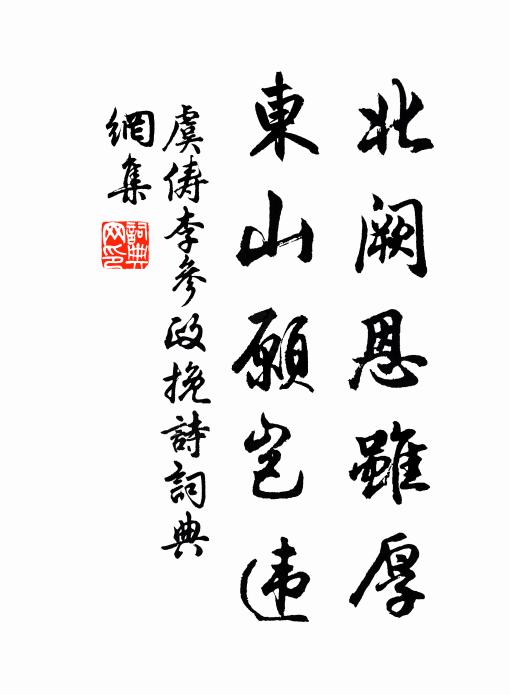 北阙恩雖厚
東山願岂违
虞儔李參政挽詩詞典
網集
詞典网印